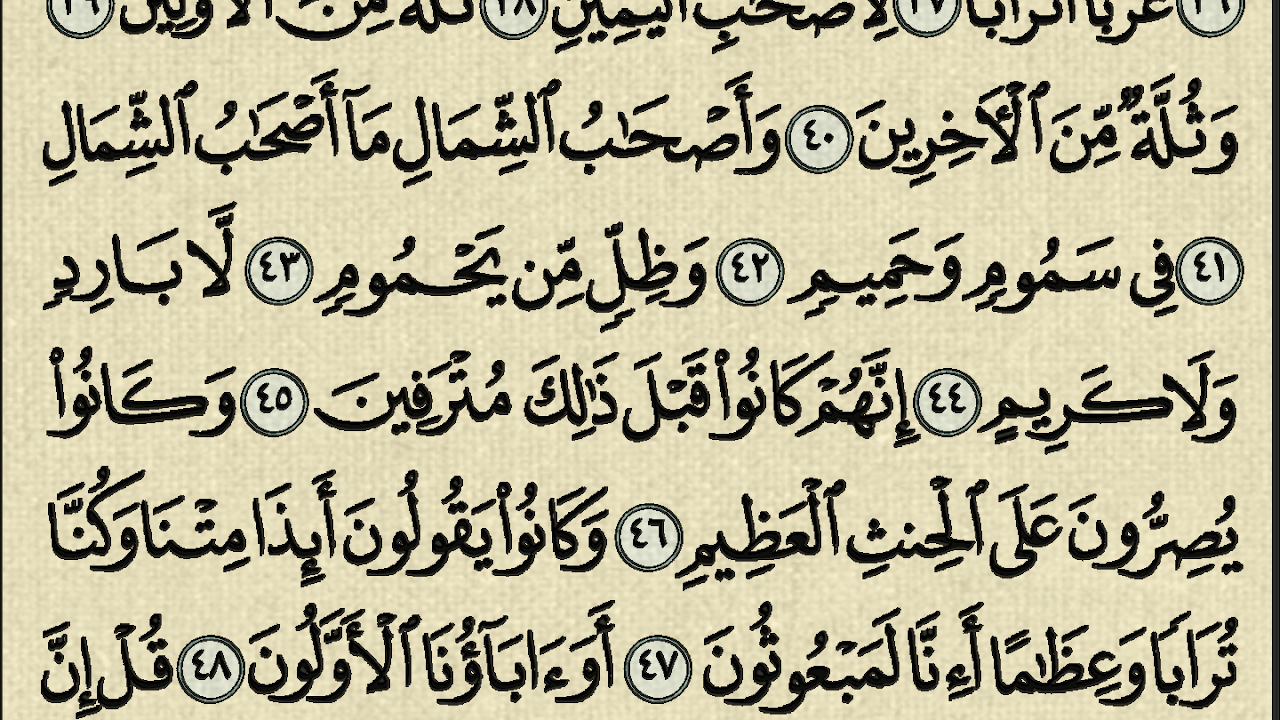 عُرُبًا أَتْرَابًا ٣٧ لِّأَصْحَٰبِ ٱلْيَمِينِ ٣٨ ثُلَّةٌ مِّنَ ٱلْأَوَّلِينَ ٣٩
وَثُلَّةٌ مِّنَ ٱلْأَخِرِينَ ٤٠ وَأَصْحَٰبُ ٱلشِّمَالِ مَآ أَصْحَٰبُ ٱلشِّمَالِ
٤١ فِى سَمُومٍ وَحَمِيمٍ ٤٢ وَظِلٍّ مِّن يَحْمُومٍ ٤٣ لَّا بَارِدٍ
وَلَا كَرِيمٍ ٤٤ إِنَّهُمْ كَانُوا۟ قَبْلَ ذَٰلِكَ مُتْرَفِينَ ٤٥ وَكَانُوا۟
يُصِرُّونَ عَلَى ٱلْحِنثِ ٱلْعَظِيمِ ٤٦ وَكَانُوا۟ يَقُولُونَ أَئِذَا مِتْنَا وَكُنَّا
تُرَابًا وَعِظَٰمًا أَءِنَّا لَمَبْعُوثُونَ ٤٧ أَوَءَابَآؤُنَا ٱلْأَوَّلُونَ ٤٨ قُلْ إِنَّ